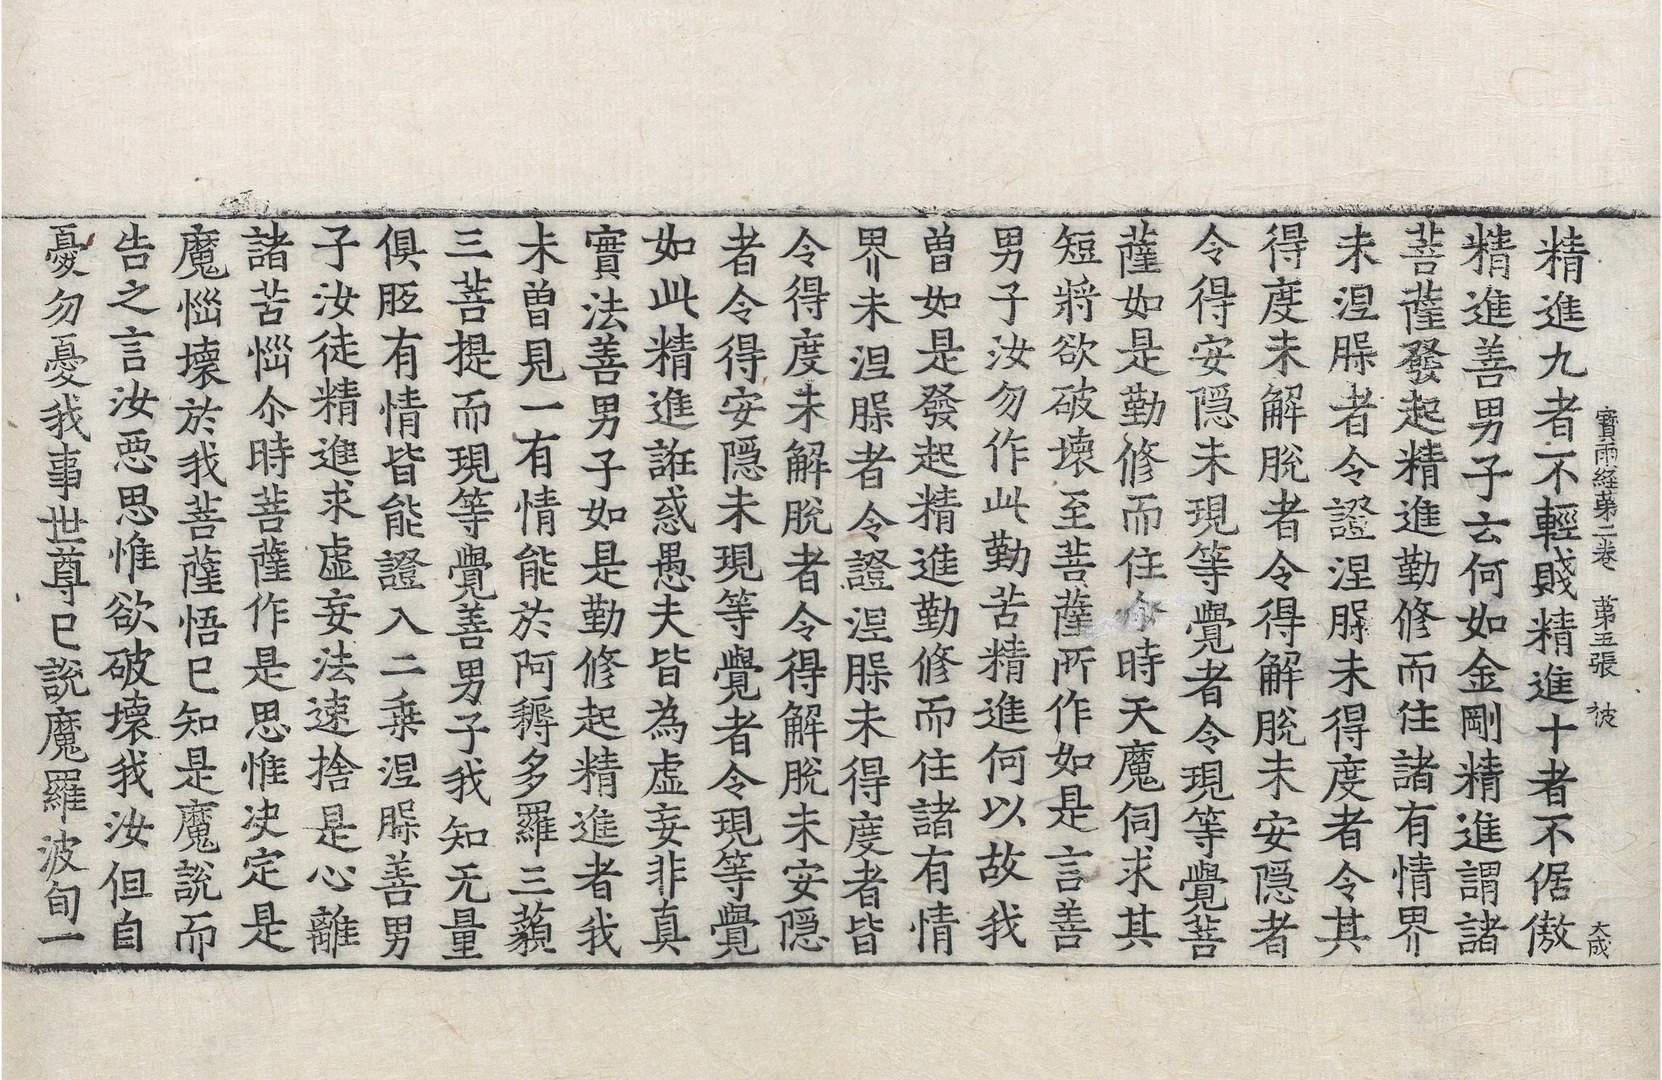 寶雨經苐二卷　苐五張　彼　大成
精進九者不輕賎精進十者不倨傲
精進善男子云何如金剛精進謂諸
菩薩發起精進勤修而住諸有情界
未涅槃者令證涅槃未得度者令其
得度未解脫者令得解脫未安隱者
令得安隱未現等覺者令現等覺菩
薩如是勤修而住尒時天魔伺求其
短將欲破壞至菩薩所作如是言善
男子汝勿作此勤苦精進何以故我
曽如是發起精進勤修而住諸有情
界未涅槃者令證涅槃未得度者皆
令得度未解脫者令得解脫未安隱
者令得安隱未現等覺者令現等覺
如此精進誑惑愚夫皆為虛妄非真
實法善男子如是勤修起精進者我
未曽見一有情能於阿耨多羅三藐
三菩提而現等覺善男子我知无量
俱胝有情皆能證入二乗涅槃善男
子汝徒精進求虛妄法速捨是心離
諸苦惱尒時菩薩作是思惟決定是
魔惱壞於我菩薩悟已知是魔說而
告之言汝惡思惟欲破壞我汝但自
憂勿憂我事世尊已說魔羅波旬一